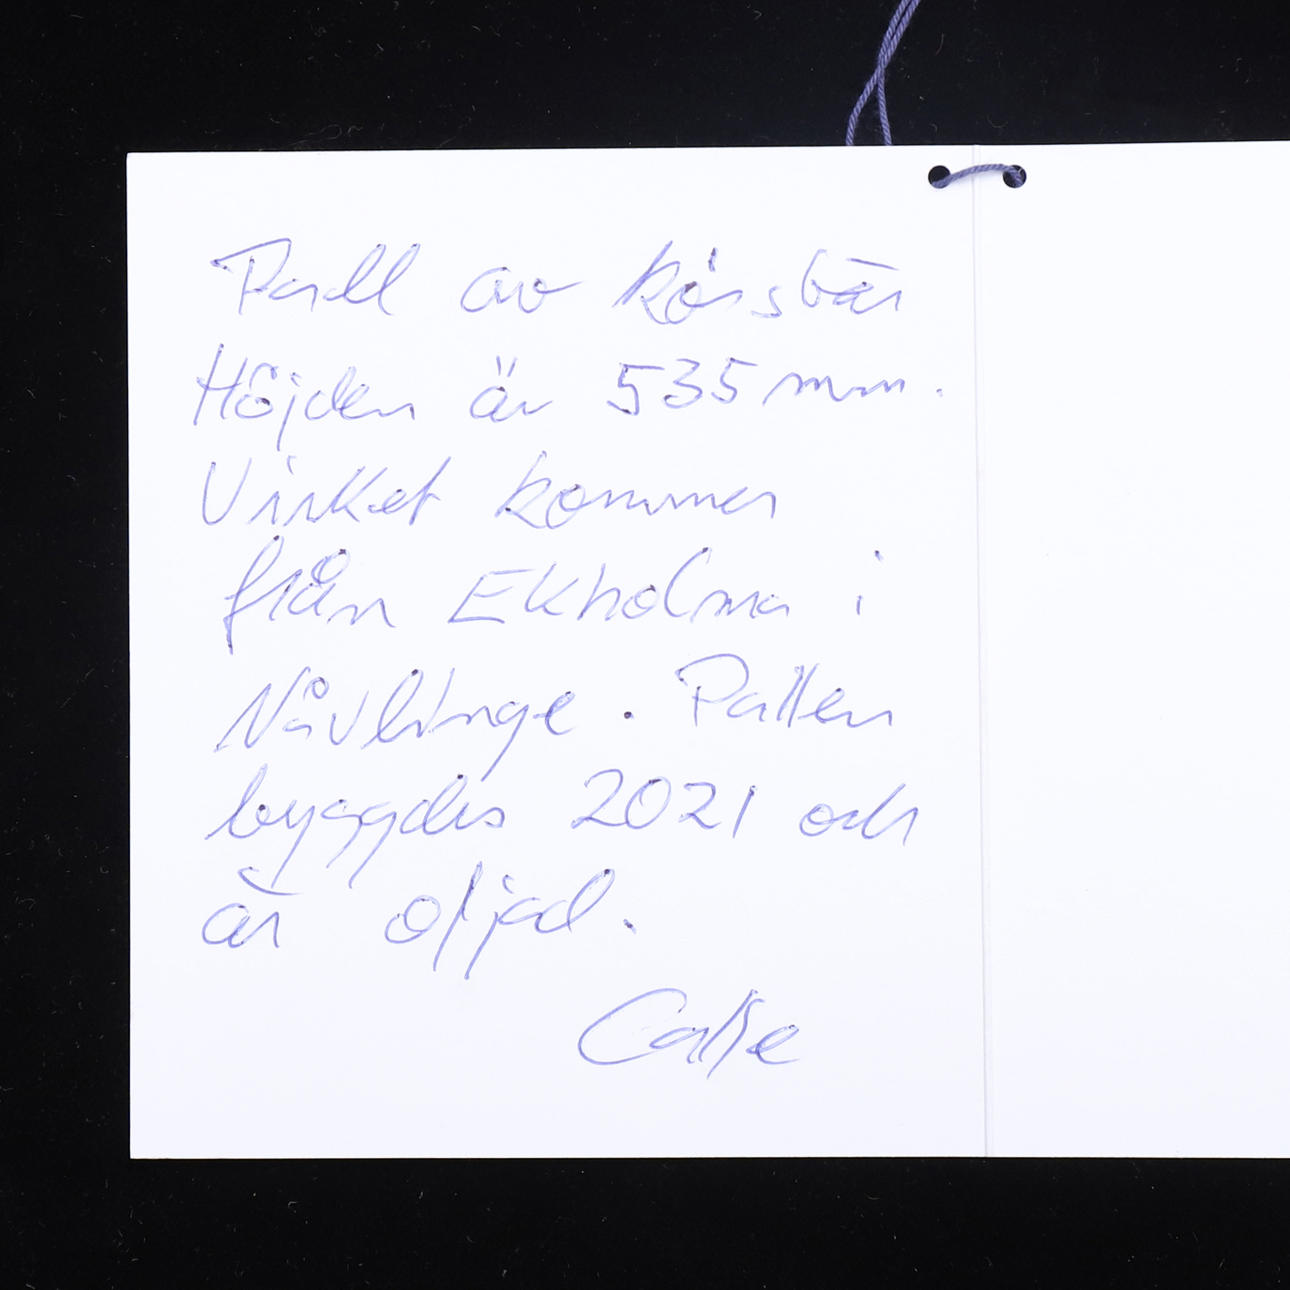 Pall av körsbär
Höjden är 535 mm.
Virket kommer
från Ekholma i
Nävlinge. Pallen
byggdes 2021 och
är oljad.
Calle